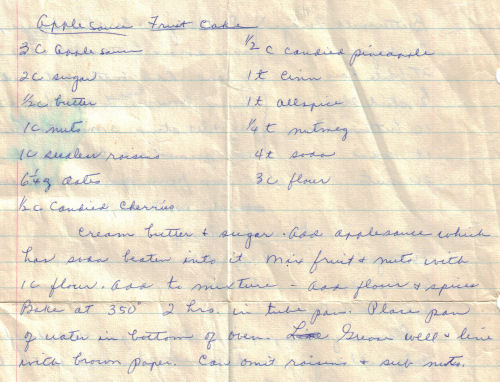 Applesauce Fruit Cake
3 C Applesauce
2 C sugar
1/2 c butter
1 C nuts
1 C seedless raisins
6 1/4 oz dates
1/2 C Candied Cherries
1/2 C Candied pineapple
1 t Cinn
1 t allspice
1/4 t nutmeg
4 t soda
3 C flour
Cream butter & sugar. Add applesauce which
has soda beaten into it. Mix fruit & nuts with
1 C flour. Add to mixture - add flour & spices
Bake at 350° 2 hrs. in tube pan. Place pan
of water in bottom of oven. Grease well & line
with brown paper. Can omit raisins & sub nuts.